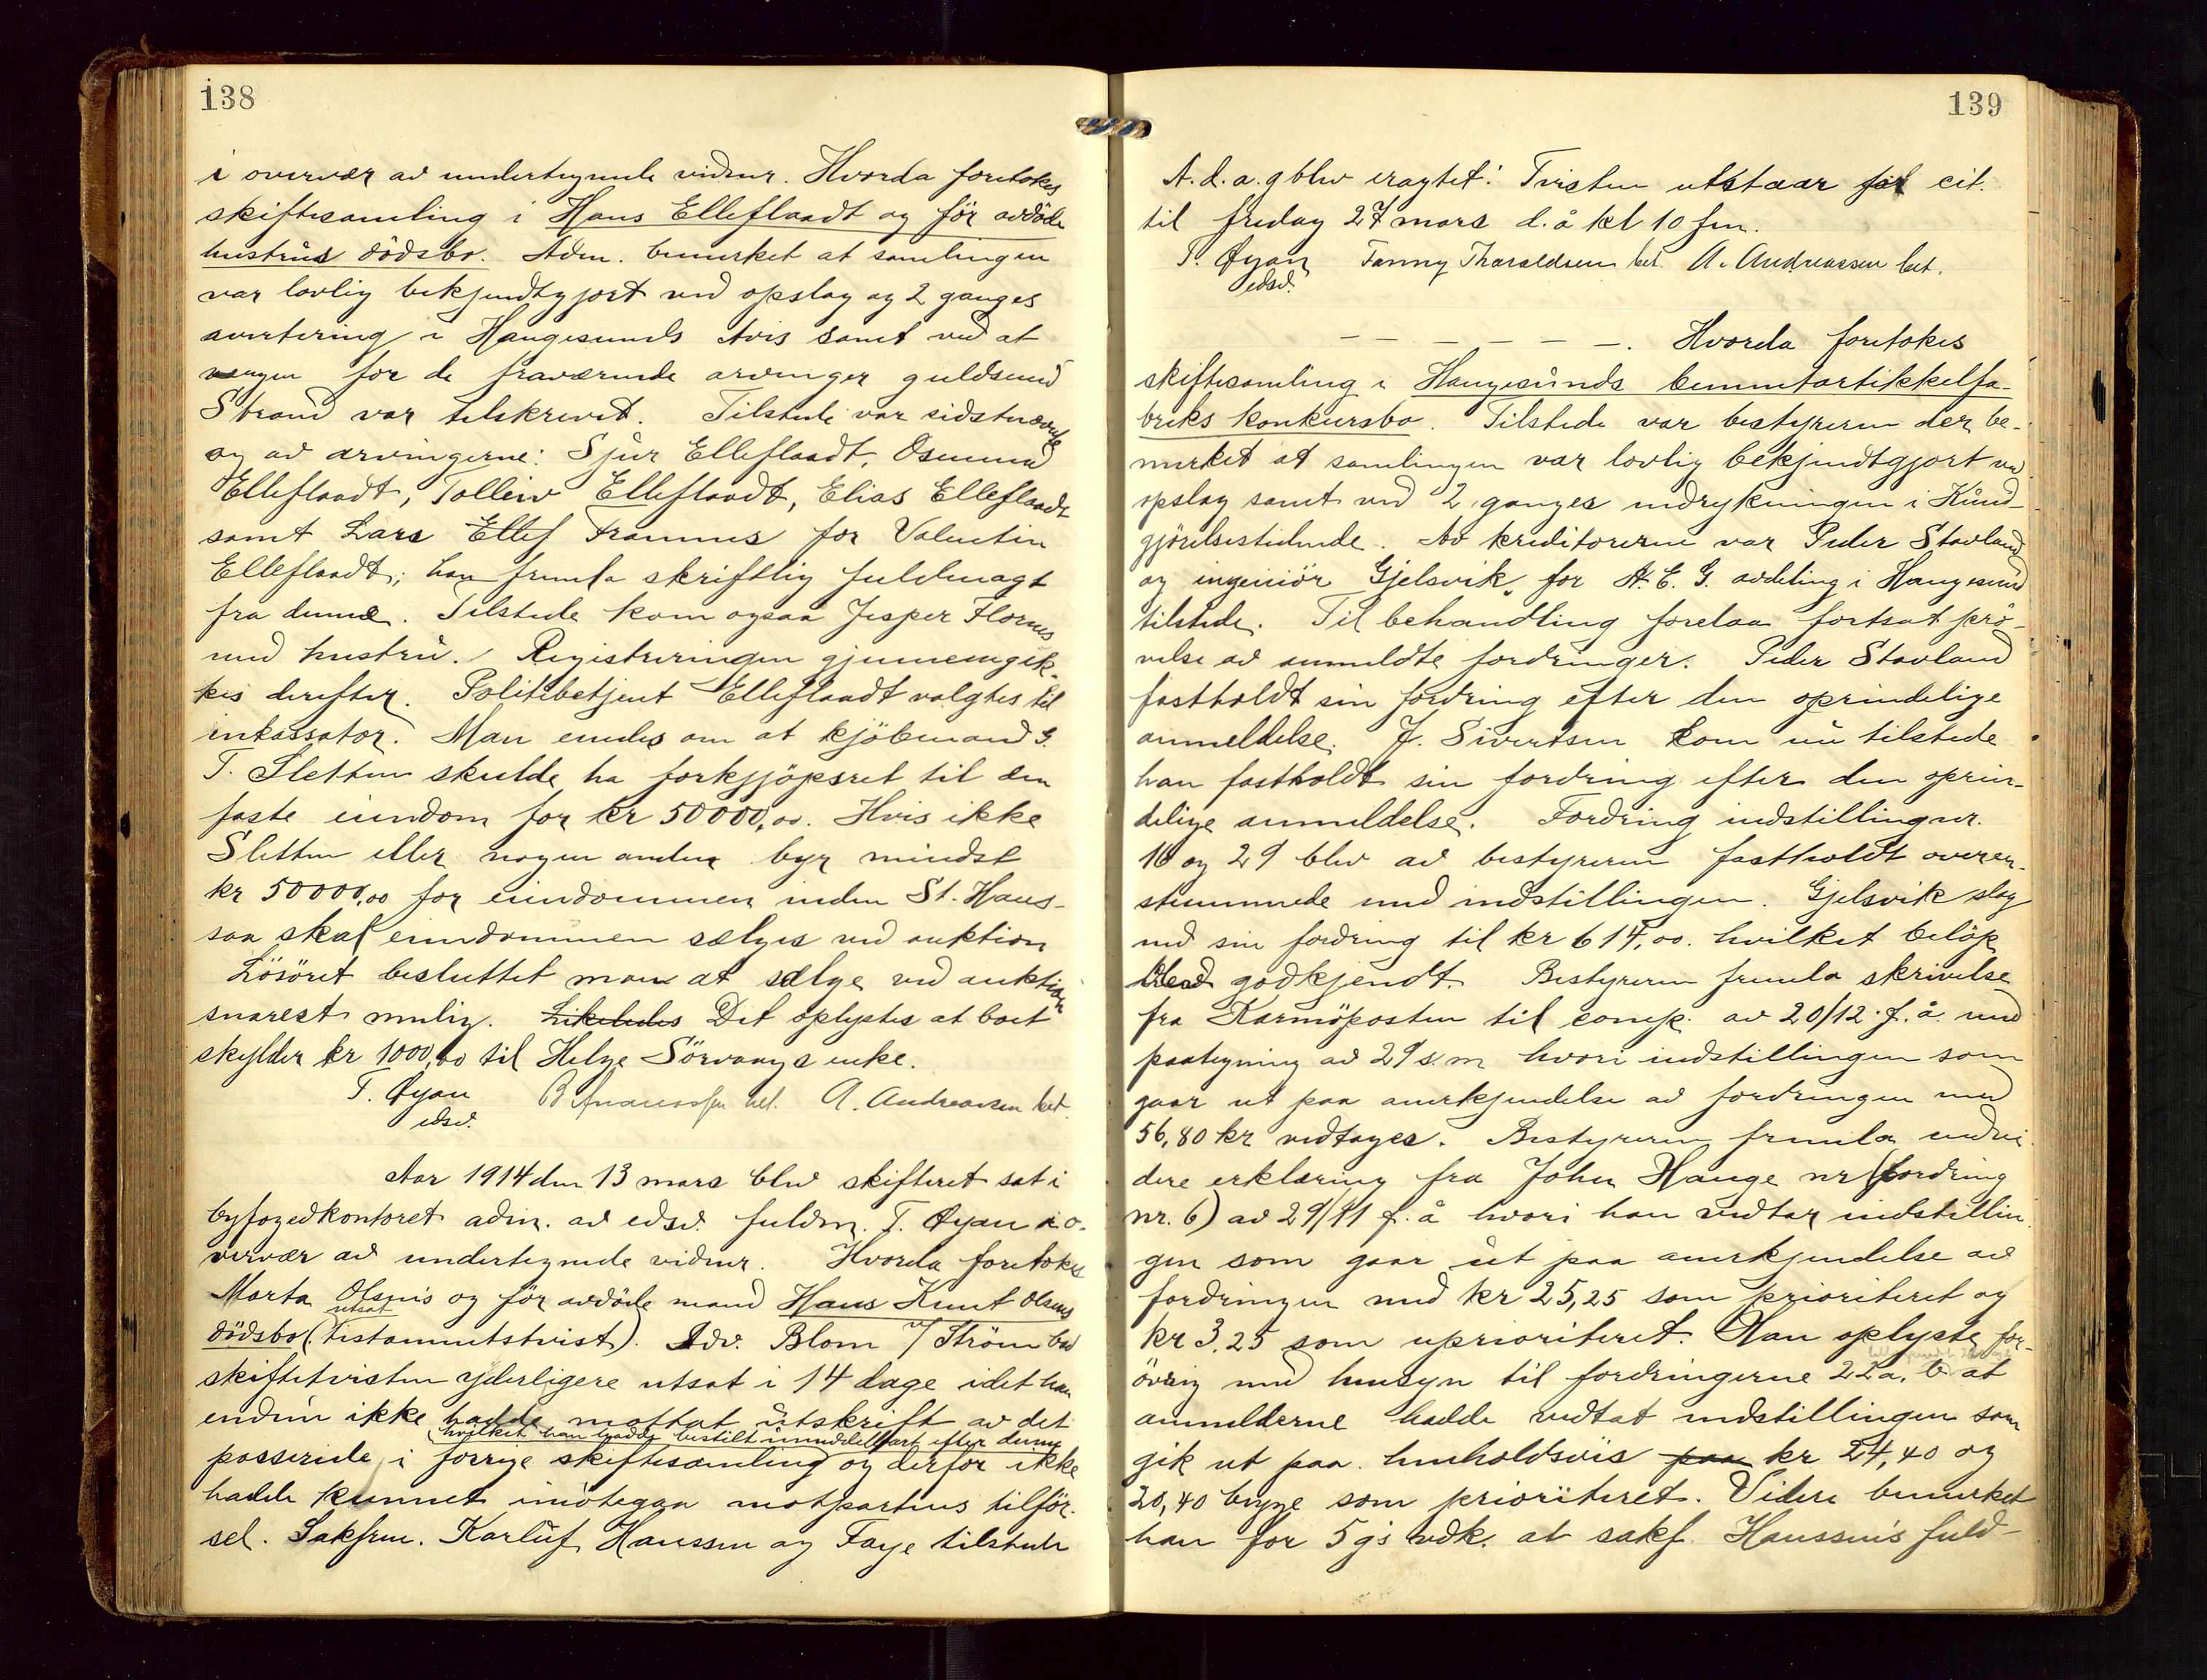 138
i overvær av undertegnede vidner. Hvorda foretokes
skiftesamling i Hans Elleflaadt og før avdöde
hustrus dödsbo. Adm. bemerket at samlingen
var lovlig bekjendtgjort ved opslag og 2 ganges
avertering i Haugesunds Avis samt ved at
vergen for de fraværende arvinger guldsmed
Strand var tilskrevet. Tilstede var sidstnævnte
og av arvingerne: Sjur Elleflaadt, Osmund
Elleflaadt, Tolleiv Elleflaadt, Elias Elleflaadt
samt Lars Ellef Framnes for Valentin
Elleflaadt; han fremla skriftlig fuldmagt
fra denne. Tilstede kom ogsaa Jesper Flornes
med hustru. Registreringen gjennemgik-
kes derefter. Politibetjent Elleflaadt valgtes til
inkassator. Man enedes om at kjöbmand G.
T. Sletten skulde ha forkjöpsret til den
faste eiendom for kr 50000,00. Hvis ikke
Sletten eller nogen anden byr mindst
kr 50000,00 for eiendommen inden St. Hans-
saa skal eiendommen sælges ved auktion
Lösöret besluttet man at sælge ved auktion
snarest mulig. Likeledes Det oplystes at boet
skylder kr 1000,00 til Helge Sörvaags enke.
T. Øyan B Andreassen bet. A. Andreassen bet.
edsv.
Aar 1914 den 13 mars blev skifteret sat i
byfogedkontoret adm. av edsv. fuldm. T. Øyan i o-
vervær av undertegnede vidner. Hvorda foretokes
Marta Olsens og för avdöde mand Hans Knut Olsens
utsat
dödsbo (testamentstvist). Adv. Blom v/ Ström bad
skiftetvisten yderligere utsat i 14 dage idet han
endnu ikke hadde mottat utskrift av det
hvilket han hadde bestilt umiddelbart efter denne
passerede i forrige skiftesamling og derfor ikke
hadde kunnet imötegaa motpartens tilför-
sel. Sakfrer. Karluf Hanssen og Faye tilstede
139
A. d. a. g blev eragtet: Tvisten utstaar for cit.
til fredag 27 mars d.å kl 10 fm.
T. Øyan Fanny Tharaldsen bet. A. Andreassen bet.
edsv.
— — — — — —. Hvorda foretokes
skiftesamling i Haugesunds cementartikkelfa-
briks konkursbo. Tilstede var bestyreren der be-
merket at samlingen var lovlig bekjendtgjort ved
opslag samt ved 2 ganges indrykningen i Kund-
gjörelsestidende. Av kreditorerne var Peder Stavland
og ingeniör Gjelsvik for A. E. G. avdeling i Haugesund
tilstede. Til behandling forelaa fortsat prö-
velse av anmeldte fordringer. Peder Stavland
fastholdt sin fordring efter den oprindelige
anmeldelse. J. Sivertsen kom nu tilstede
han fastholdt sin fordring efter den oprin-
delige anmeldelse. Fordring indstillingnr.
10 og 29 blev av bestyreren fastholdt overen-
stemmende med indstillingen. Gjelsvik slog
ned sin fordring til kr 614,00. hvilket belöp
blev godkjendt. Bestyreren fremla skrivelse
fra Karmöposten til comp. av 20/12 f.å. med
paategning av 29 s.m hvori indstillingen som
gaar ut paa anerkjendelse av fordringen med
56,80 kr vedtages. Bestyreren fremla endvi
dere erklæring fra John Hauge nr (fordring
nr. 6) av 29/11 f.å hvori han vedtar indstillin
gen som gaar ut paa anerkjendelse av
fordringen med kr 25,25 som prioriteret og
kr 3,25 som uprioriteret. Han oplyste for-
övrig med hensyn til fordringerne 22a, b at
anmelderne hadde vedtat indstillingen som
gik ut paa henholdsvis paa kr 24,40 og
20,40 begge som prioriteret. Videre bemerket
han for 5 g's vedk. at sakf. Hanssen's fuld-